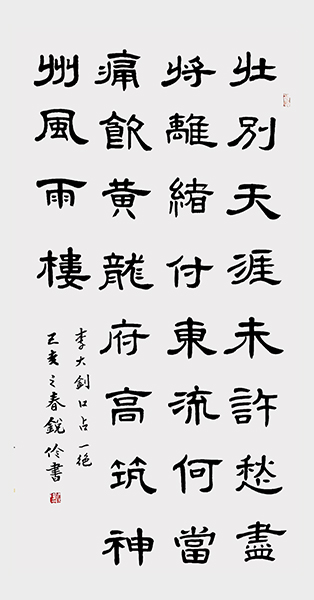 壯別天涯未許愁盡
將離緒付東流何當
痛飲黃龍府高筑神
州風雨樓
李大釗口占一絕
己亥之春銳伶書